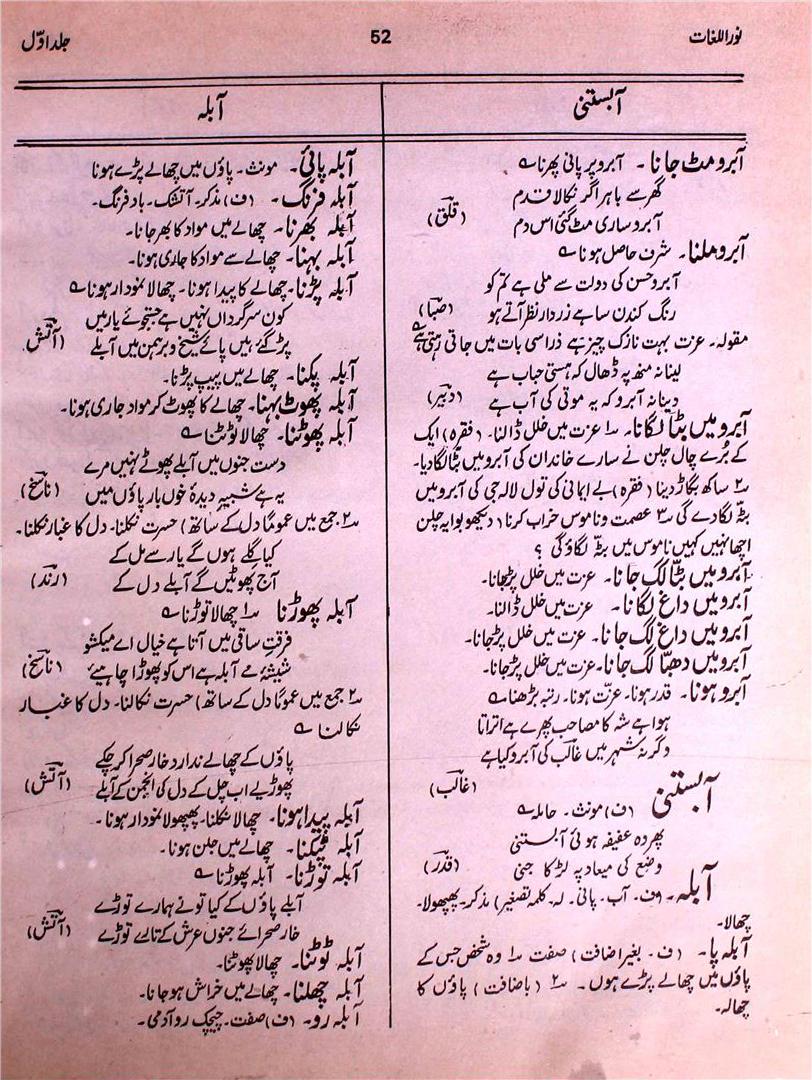 نوراللغات
52
جلد اوّل
آبستنی
آبرو مٹ جانا ۔ آبرو پر پانی پھرنا ؎
گھر سے باہر اگر نکالا قدم
آبرو ساری مٹ گئی اس دم (قلق)
آبرو ملنا۔ شرف حاصل ہونا ؎
آبرو حسن کی دولت سے ملی ہے تم کو
رنگ کندن سا ہے زردار نظر آتے ہو (صبا)
مقولہ۔ عزت بہت نازک چیز ہے ذرا سی بات میں جاتی رہتی ہے
لینا نہ منھ پہ ڈھال کہ ہستی حباب ہے
دینا نہ آبرو کہ یہ موتی کی آب ہے (دبیر)
آبرو میں بٹا لگانا۔ ۱؎ عزت میں خلل ڈالنا۔ (فقرہ) ایک
کے بُرے چال چلن نے سارے خاندان کی آبرو میں بٹا لگا دیا۔
۲؎ ساکھ بگاڑ دینا (فقرہ) بے ایمانی کی تول لالہ جی کی آبرو میں
بٹہ لگادے گی ۳؎ عصمت و ناموس خراب کرنا (دیکھو بوا یہ چلن
اچھا نہیں کہیں ناموس میں بٹہ لگاؤ گی ؟
آبرو میں بٹّا لگ جانا۔ عزت میں خلل پڑجانا۔
آبرو میں داغ لگانا۔ عزت میں خلل ڈالنا۔
آبرو میں داغ لگ جانا۔ عزت میں خلل پڑجانا۔
آبرو میں دھبّا لگ جانا۔ عزت میں خلل پڑجانا۔
آبرو ہونا۔ قدر ہونا۔ عزّت ہونا۔ رتبہ بڑھنا ؎
ہوا ہے شہ کا مصاحب پھرے ہے اتراتا
وگرنہ شہر میں غالب کی آبرو کیا ہے
(غالب)
آبستنی (ف) مونث۔ حاملہ ؎
پھر وہ عفیفہ ہوئی آبستنی
وضع کی میعاد پہ لڑکا جنی (قدر)
آبلہ۔ (ف۔ آب۔ پانی۔ لہ۔ کلمہ تصغیر) مذکر۔ پھپھولا۔
چھالا۔
آبلہ پا۔ (ف۔ بغیر اضافت) صفت ۱؎ وہ شخص جس کے
پاؤں میں چھالے پڑے ہوں۔ ۲؎ (با ضافت) پاؤں کا
چھالہ۔
آبلہ
آبلہ پائی۔ مونث۔ پاؤں میں چھالے پڑے ہونا
آبلہ فرنگ۔ (ف) مذکر۔ آتشک۔ باد فرنگ۔
آبلہ بھرنا۔ چھالے میں مواد کا بھر جانا۔
آبلہ بہنا۔ چھالے سے مواد کا جاری ہونا۔
آبلہ پڑنا۔ چھالے کا پیدا ہونا۔ چھالا نمودار ہونا ؎
کون سرگرداں نہیں ہے جستجوئے یار میں
پڑ گئے ہیں پائے شیخ و برہمن میں آبلے (آتش)
آبلہ پکنا۔ چھالے میں پیپ پڑنا۔
آبلہ پھوٹ بہنا۔ چھالے کا پھوٹ کر مواد جاری ہونا۔
آبلہ پھوٹنا۔ چھالا ٹوٹنا ؎
دست جنوں میں آبلے پھوٹے نہیں مرے
یہ ہے شبیہِ دیدۂ خوں بار پاؤں میں (ناسخ)
۲؎ جمع میں عموماً دل کے ساتھ) حسرت نکلنا۔ دل کا غبار نکلنا۔
کیا گلے ہوں گے یار سے مل کے
آج پھوٹیں گے آبلے دل کے (رند)
آبلہ پھوڑنا ۱؎ چھالا توڑنا ؎
فرقتِ ساقی میں آتا ہے خیال اے میکشو
شیشۂ مے آبلہ ہے اس کو پھوڑا چاہیے (ناسخ)
۲؎ جمع میں عموماً دل کے ساتھ) حسرت نکالنا۔ دل کا غبار
نکالنا ؎
پاؤں کے چھالے ندارد خار صحرا کرچکے
پھوڑیے اب چل کے دل کی انجمن کے آبلے (آتش)
آبلہ پیدا ہونا۔ چھالا نکلنا۔ پھپھولا نمودار ہونا۔
آبلہ ٹپکنا۔ چھالے میں جلن ہونا۔
آبلہ توڑنا۔ آبلہ پھوڑنا ؎
آبلے پاؤں کے کیا تو نے ہمارے توڑے
خار صحرائے جنوں عرش کے تارے توڑے (آتش)
آبلہ ٹوٹنا۔ چھالا پھوٹنا۔
آبلہ چھلنا۔ چھالے میں خراش ہو جانا۔
آبلہ رو۔ (ف) صفت۔ چیچک رو آدمی۔